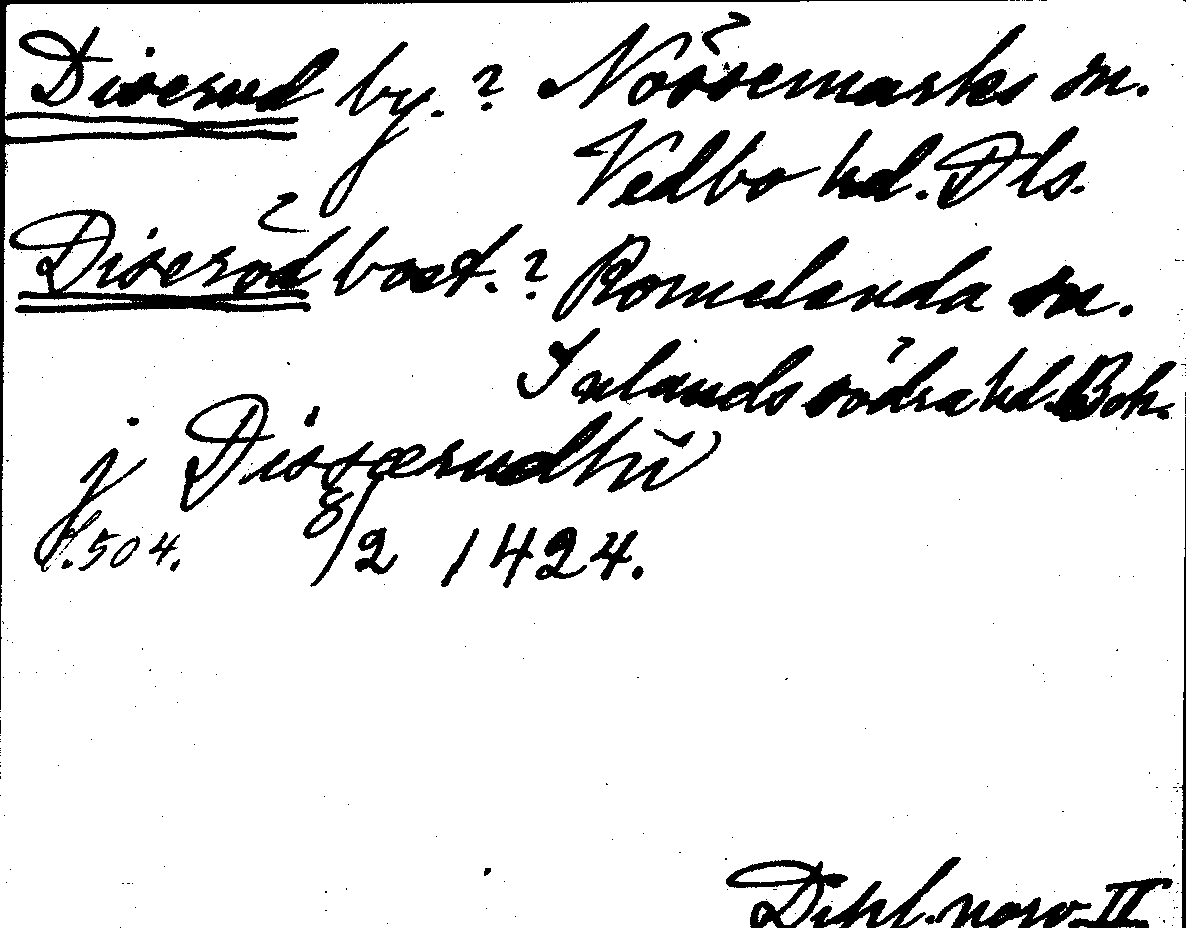 Diserud by.? Nössemarks sn.
Vedbo hd. Dls.
Diseröd bost.? Romelanda sn.
Inlands södra hd. Boh.
j Dissærudhū
s. 504. 8/2 1424.
Dipl. norv. II